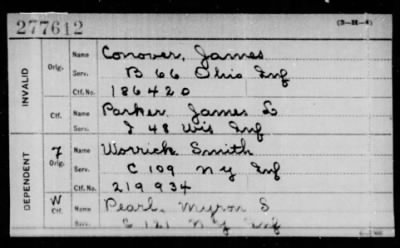 277612 (3-H-4)
INVALID
Orig. Name Conover, James
Serv. B 66 Ohio Inf
Ctf. No. 186420
Ctf. Name Parker, James L
Serv. I 48 Wis Inf
DEPENDENT
F Orig. Name Worrick Smith
Serv. C 109 NY Inf
Ctf. No. 219934
W Ctf. Name Pearl, Myron S
Serv. C 121 NY Inf